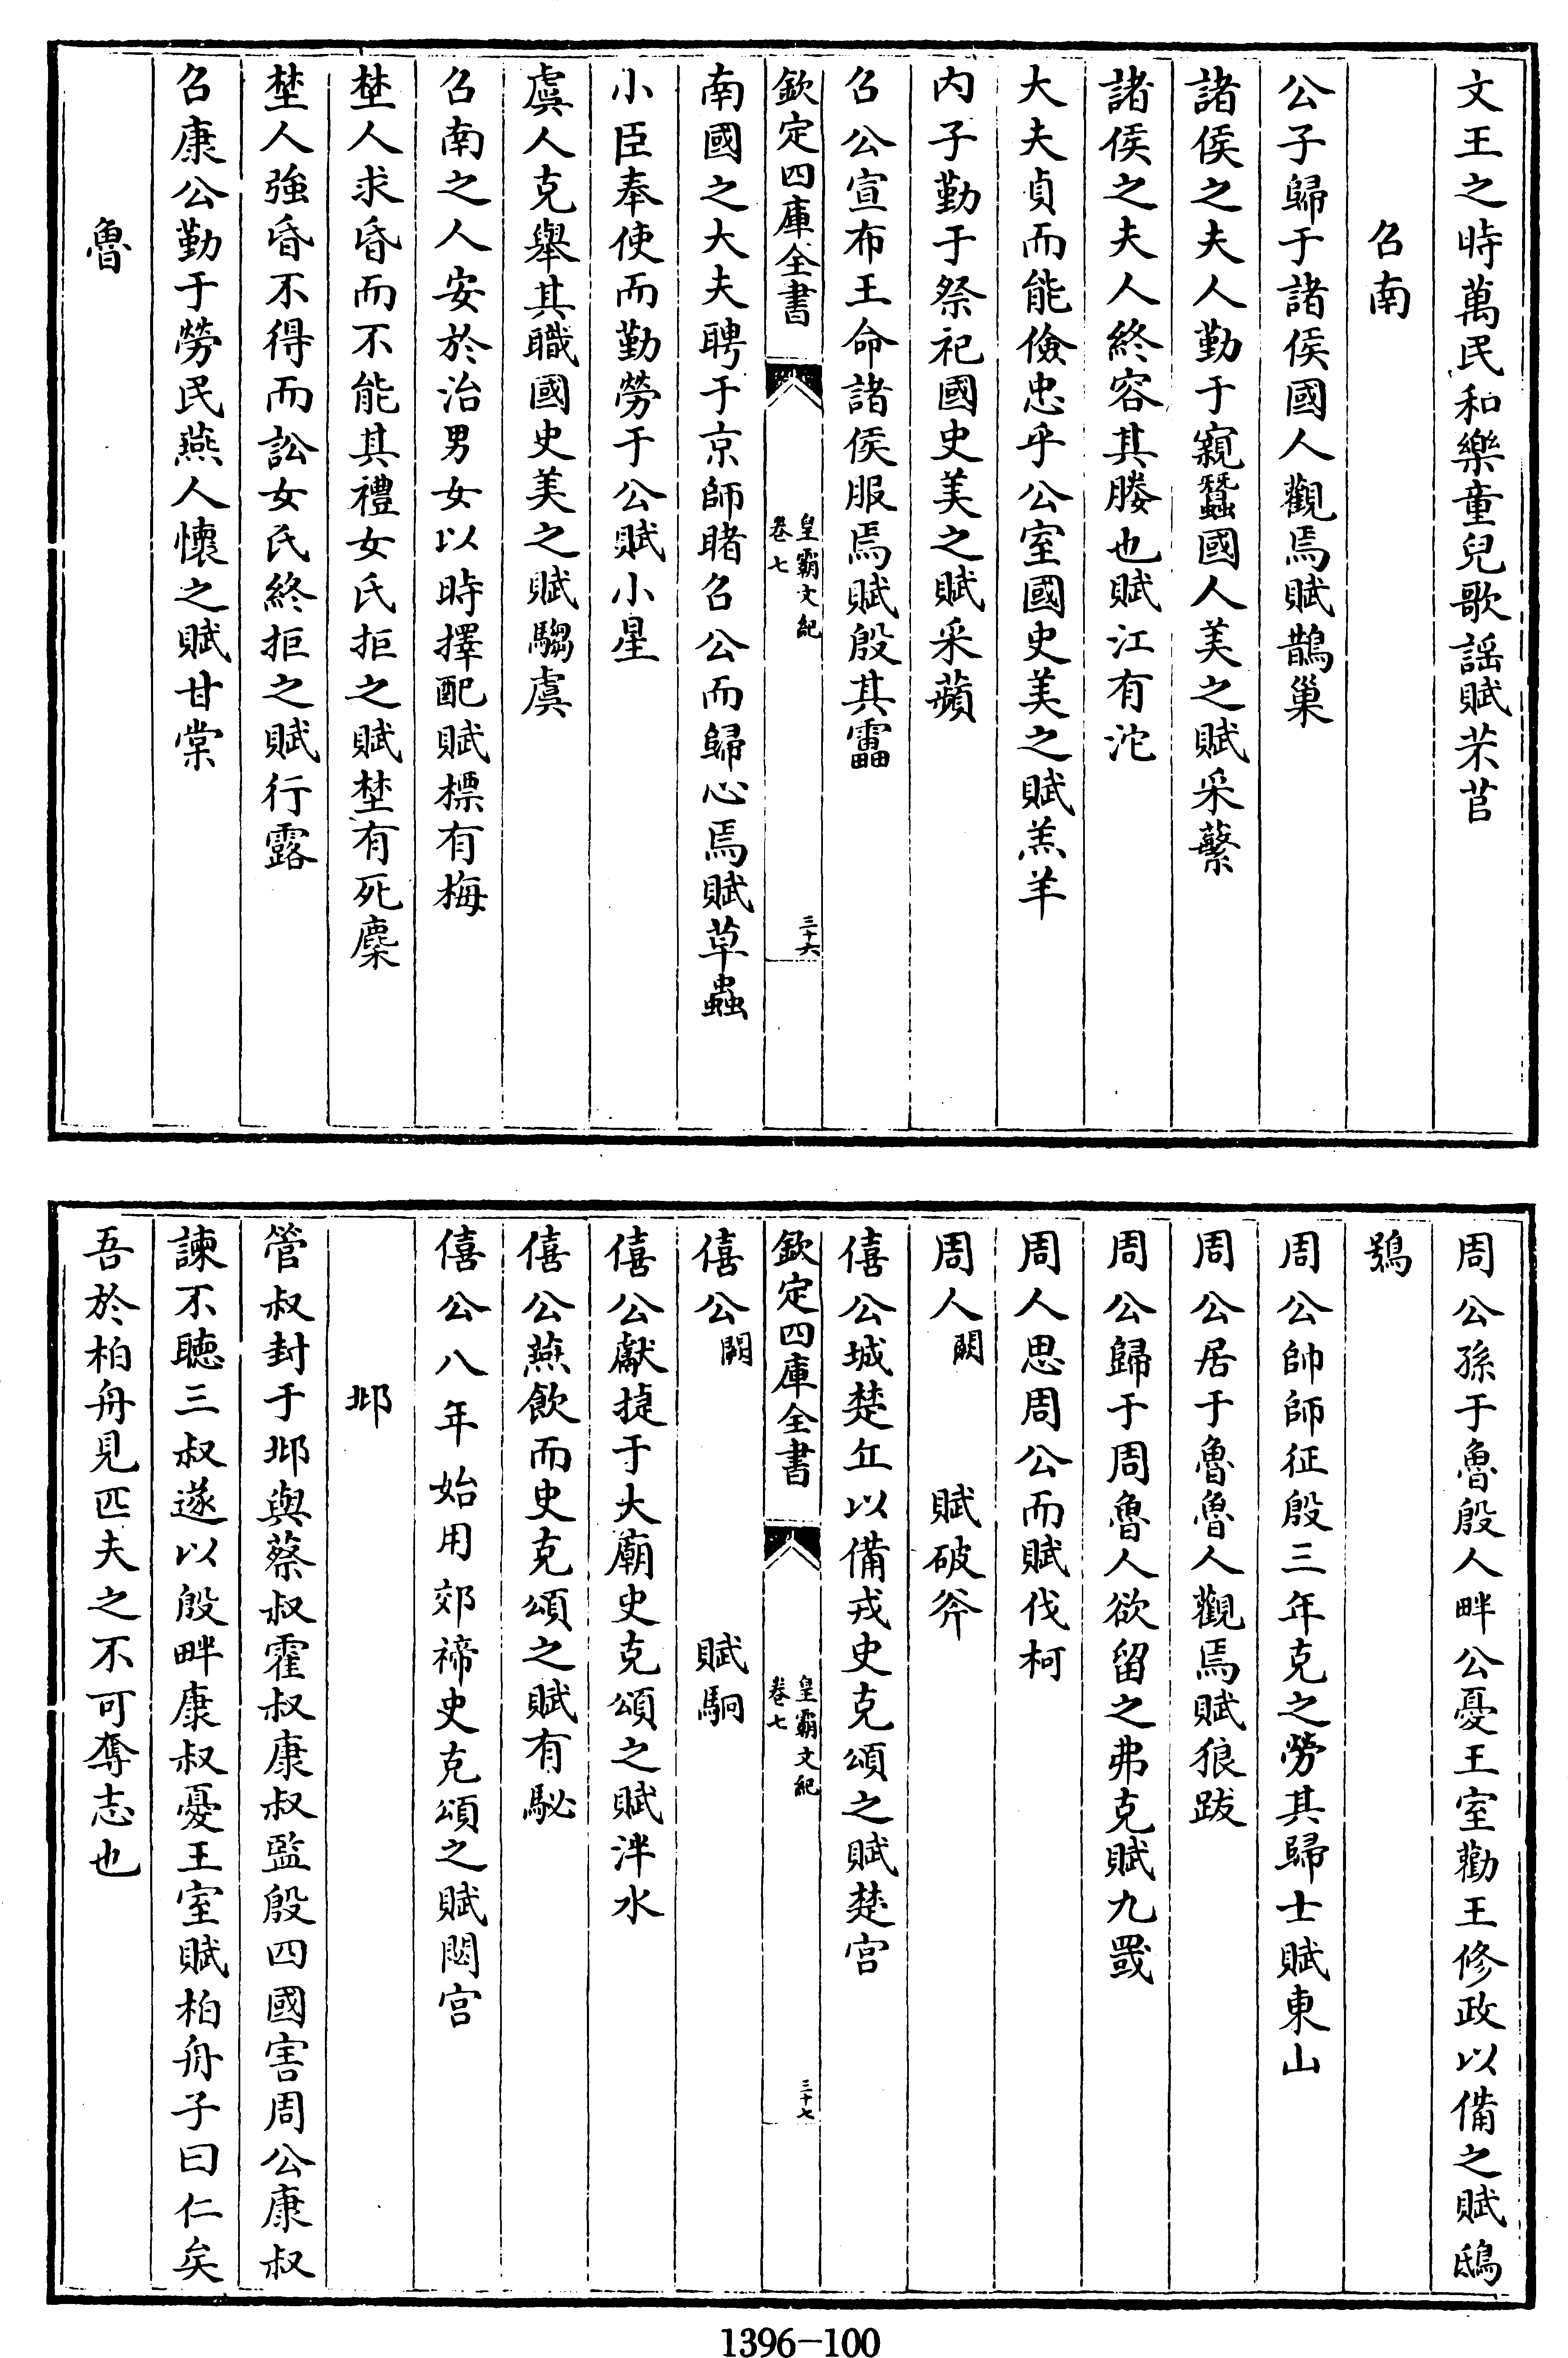 文王之時萬民和樂童兒歌謡賦芣苢
召南
公子歸于諸侯國人觀焉賦鵲巢
諸侯之夫人勤于親蠶國人美之賦采蘩
諸侯之夫人終容其媵也賦江有沱
大夫貞而能儉忠乎公室國史美之賦羔羊
内子勤于祭祀國史美之賦采蘋
召公宣布王命諸侯服焉賦殷其靁
欽定四庫全書
皇霸文紀
卷七
三十六
南國之大夫聘于京師睹召公而歸心焉賦草蟲
小臣奉使而勤勞于公賦小星
虞人克舉其職國史美之賦騶虞
召南之人安於治男女以時擇配賦摽有梅
埜人求昏而不能其禮女氏拒之賦埜有死麇
埜人強昏不得而訟女氏終拒之賦行露
召康公勤于勞民燕人懷之賦甘棠
魯
周公孫于魯殷人畔公憂王室勸王修政以備之賦鴟
鴞
周公帥師征殷三年克之勞其歸士賦東山
周公居于魯魯人觀焉賦狼跋
周公歸于周魯人欲留之弗克賦九罭
周人思周公而賦伐柯
周人闕 賦破斧
僖公城楚丘以備戎史克頌之賦楚宫
欽定四庫全書
皇霸文紀
卷七
三十七
僖公闕 賦駉
僖公獻捷于大廟史克頌之賦泮水
僖公燕飲而史克頌之賦有駜
僖公八年始用郊禘史克頌之賦閟宫
邶
管叔封于邶與蔡叔霍叔康叔監殷四國害周公康叔
諫不聴三叔遂以殷畔康叔憂王室賦柏舟子曰仁矣
吾於柏舟見匹夫之不可奪志也
1396-100